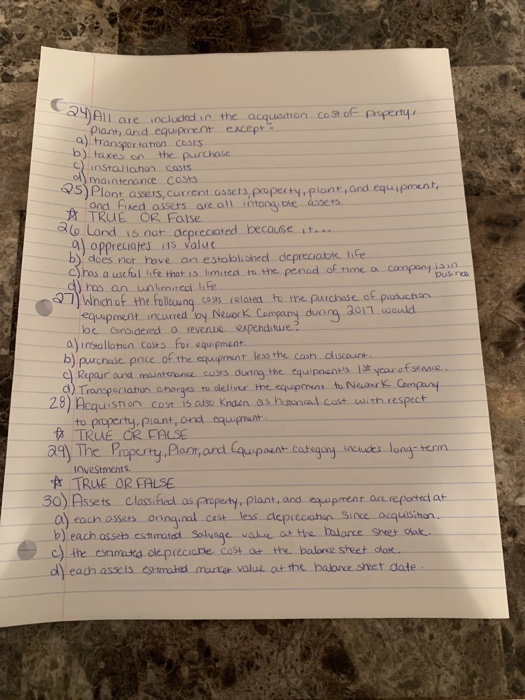 24) All are included in the acquisition cost of property,
plant, and equipment except -
a) transportation costs
b) taxes on the purchase
c) installation costs
d) maintenance costs
25) Plant assets, current assets, property, plant, and equipment,
and fixed assets are all intangible assets.
☆ TRUE OR False
26 Land is not depreciated because it....
a) appreciates its value
b) does not have an established depreciable life.
c) has a useful life that is limited to the period of time a company is in business
d) has an unlimited life
27) Which of the following costs related to the purchase of production
equipment incurred by Newark Company during 2017 would
be considered a revenue expenditure?
a) installation costs for equipment.
b) purchase price of the equipment less the cash discount.
c) Repair and maintenance costs during the equipments 1st year of service.
d) Transportation charges to deliver the equipment to Newark Company
28) Acquistion cost is also known as historical cost with respect
to property, plant, and equipment.
☆ TRUE OR FALSE
29) The Property, Plant, and Equipment category includes long-term
investments.
☆ TRUE OR FALSE
30) Assets classified as property, plant, and equipment are reported at
a) each assets original cost less depreciation since acquisition.
b) each assets estimated salvage value at the balance sheet date.
c) the estimated depreciable cost at the balance sheet date.
d) each assets estimated market value at the balance sheet date.